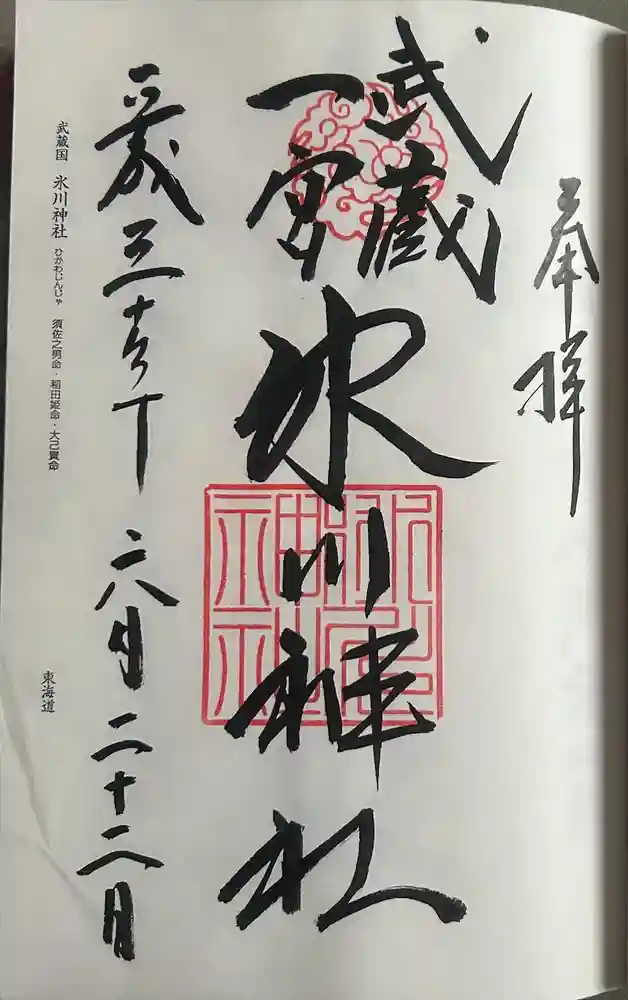 奉拝
武蔵
一宮
氷川神社
平成三十年 六月二十二日
武蔵国 氷川神社 ひかわじんじゃ 須佐之男命・稲田姫命・大己貴命
東海道